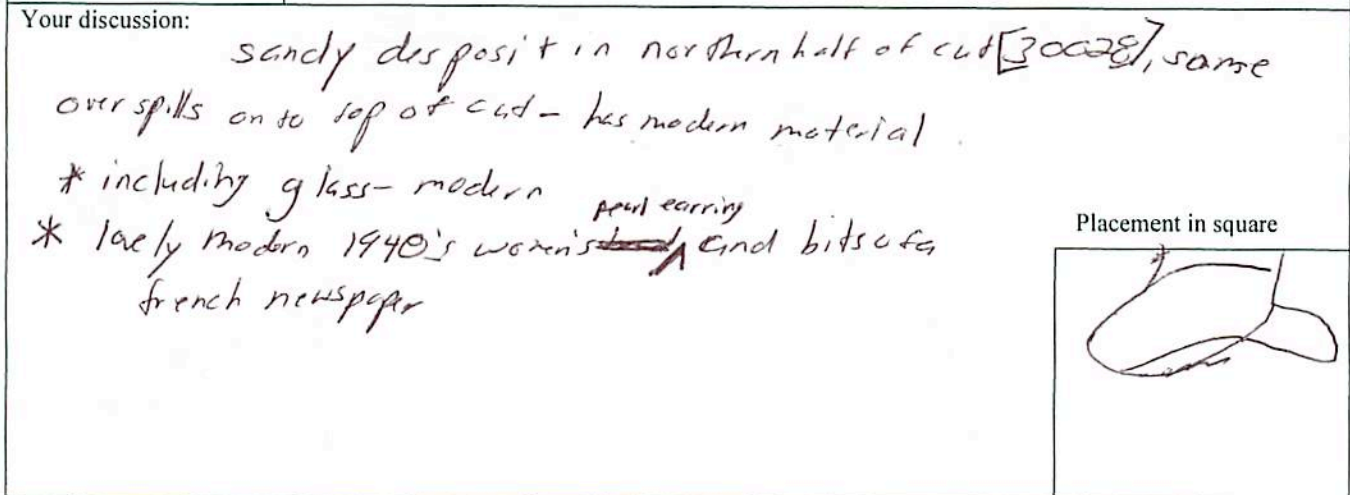 Your discussion:
sandy desposit in northern half of cut [30028], some
over spills on to top of cut - has modern material
* including glass - modern
pearl earring
* lovely modern 1940's women's and bits of a
french newspaper
Placement in square